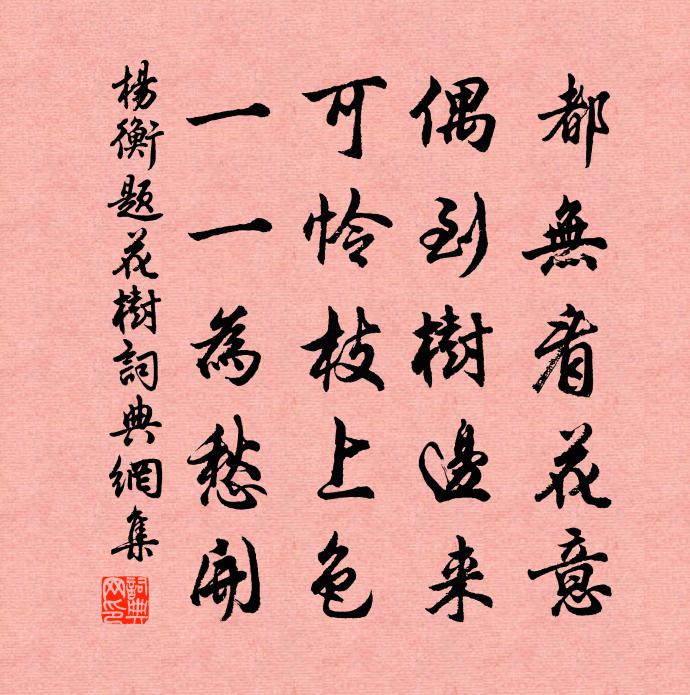 都無看花意
偶到樹邊来
可怜枝上色
一一為愁開
楊衡題花樹詞典網集
詞典網印